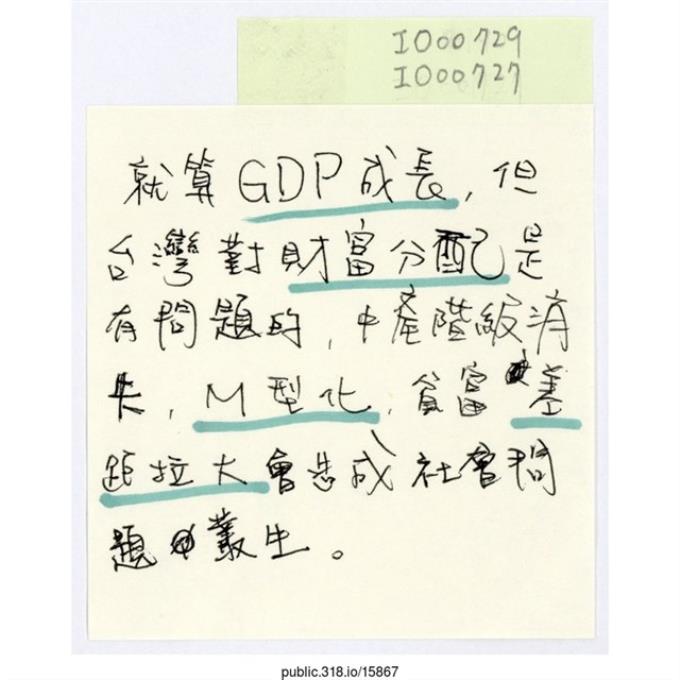 IO00729
IO00727
就算GDP成長,但
台灣對財富分配是
有問題的,中產階級消
失,M型化,貧富差
距拉大會造成社會問
題叢生。
public.318.io/15867